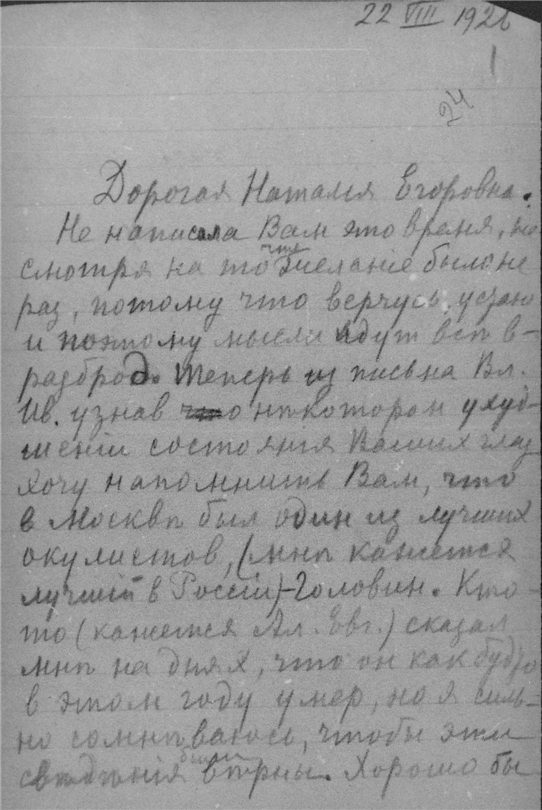 22 VIII 1926
1
24
Дорогая Наталия Егоровна.
Не написала Вам это время, не
смотря на то что желаніе было не
раз, потому что верчусь, устаю
и поэтому мысли идут всѣ в-
разброд. Теперь из письма Вл.
Ив. узнав о нѣкотором ухуд-
шеніи состоянія Ваших глаз
хочу напомнить Вам, что
в Москвѣ был один из лучших
окулистов, (мнѣ кажется
лучшій в Россіи)-Головин. Кто-
то (кажется Ал. Евг.) сказал
мнѣ на днях, что он как будто
в этом году умер, но я силь-
но сомнѣваюсь, чтобы эти
свѣдѣнія были вѣрны. Хорошо бы